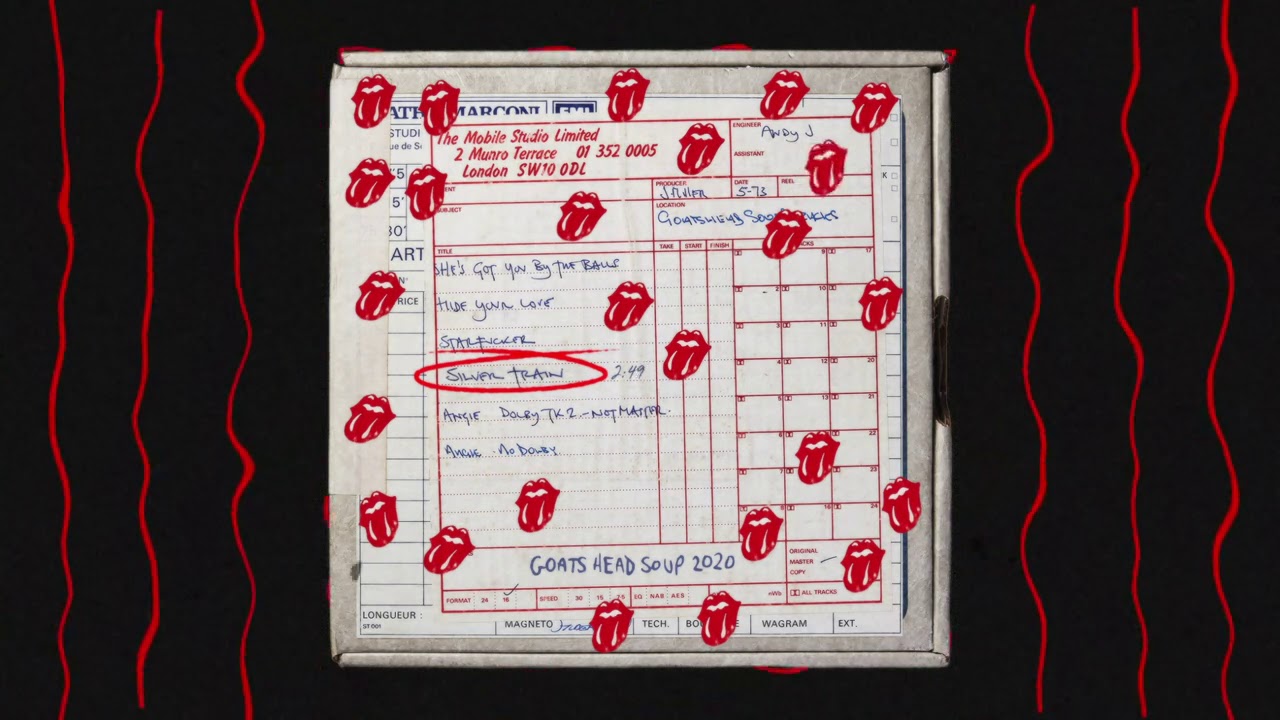 PATHE MARCONI EMI
STUDI
ue de S
The Mobile Studio Limited
2 Munro Terrace 01 352 0005
London SW10 0DL
ENGINEER
ANDY J
ASSISTANT
PRODUCER
J. MILLER
DATE
5-73
REEL
SUBJECT
LOCATION
GOATSHEAD SOUP
ART
RICE
TITLE
TAKE START FINISH
SHE'S GOT YOU BY THE BALLS
HIDE YOUR LOVE
STARFUCKER
SILVER TRAIN 2:49
ANGIE DOLBY TK 2 - NOT MASTER.
ANGIE - NO DOLBY
9 17
2 10
3 11
4 12 20
5 13 21
6 22
7 23
16 24
GOATS HEAD SOUP 2020
ORIGINAL
MASTER
COPY
FORMAT 24 16 SPEED 30 15 7·5 EQ NAB AES nWb ALL TRACKS
LONGUEUR :
ST 001
MAGNETO TECH. WAGRAM EXT.